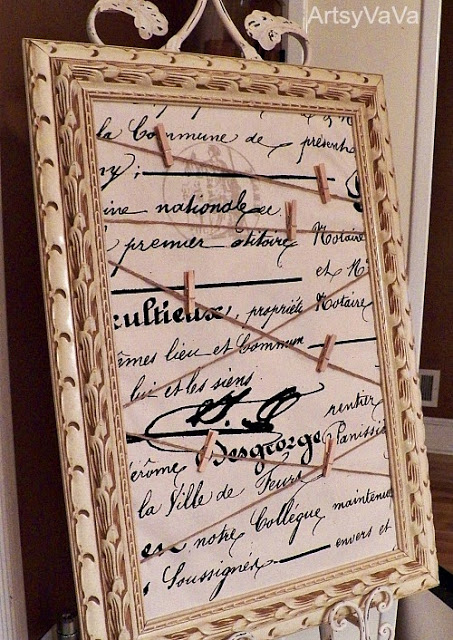 ArtsyVaVa
la Commune de présente
ny;
ine nationale
premier Notaire
et N
ultieux, propriété Notaire
êmes lieu et Commun
lui et les siens
rentier
érôme Desgeorge Panissiè
la Ville de Feurs
en notre Collégue maintenu
Soussignés envers et